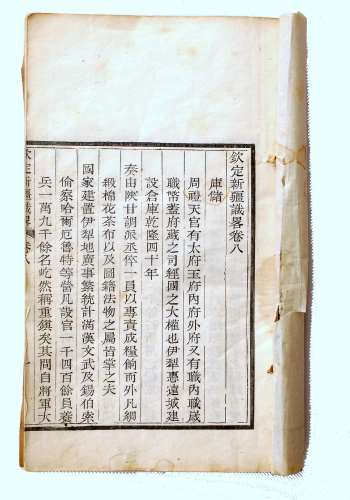 欽定新疆識略卷八
庫儲
周禮天官有太府玉府內府外府又有職內職歲
職幣蓋府藏之司經國之大權也伊犁惠遠城建
設倉庫乾隆四十年
奏由陝甘調派丞倅一員以專責成糧餉而外凡綢
緞棉花茶布以及圖籍法物之屬皆掌之夫
國家建置伊犁地廣事繁統計滿漢文武及錫伯索
倫察哈爾厄魯特等營凡設官一千四百餘員養
兵一萬九千餘名屹然稱重鎮矣其間自將軍大
欽定新疆識略 卷八